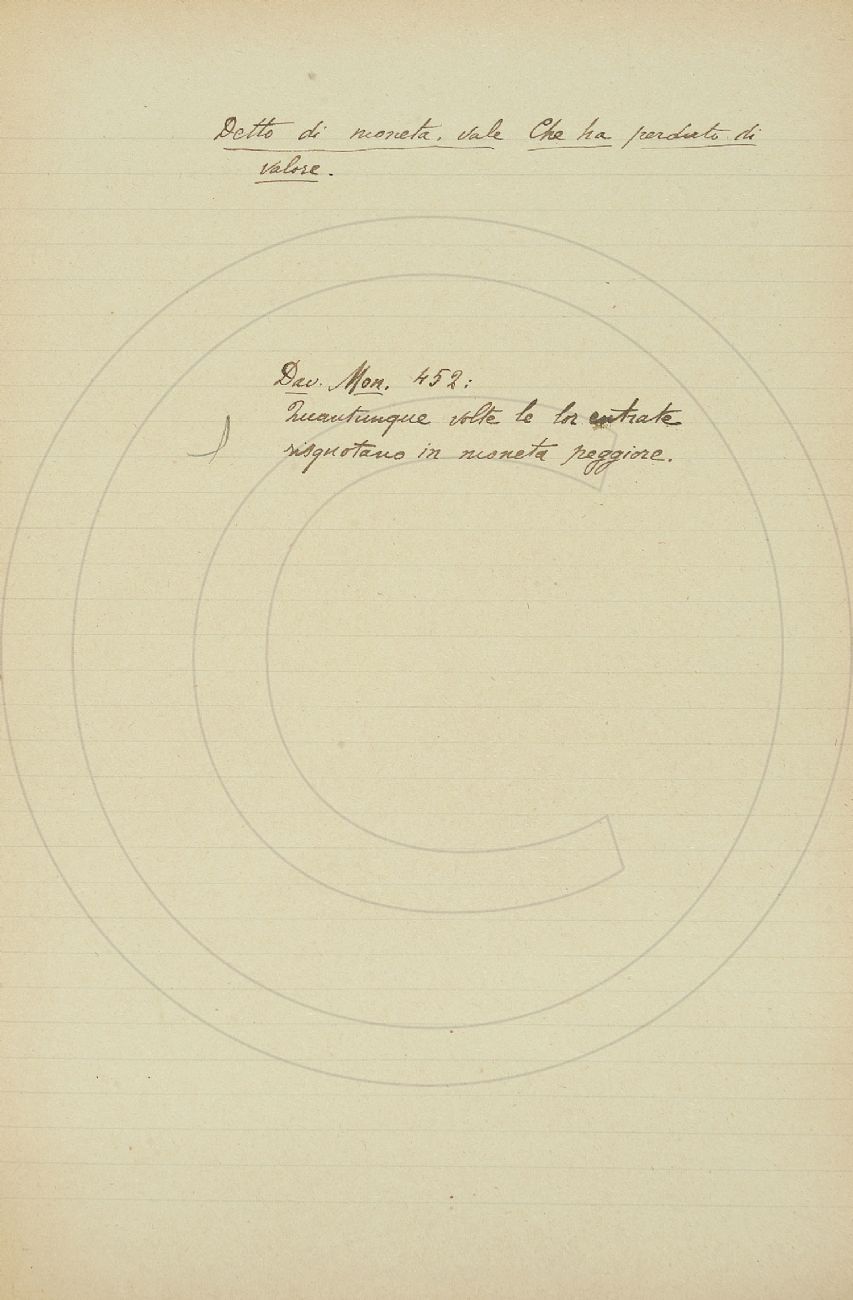 Detto di moneta, vale Che ha perduto di
valore.
Dav. Mon. 452:
Quantunque volte le lor entrate
risquotano in moneta peggiore.